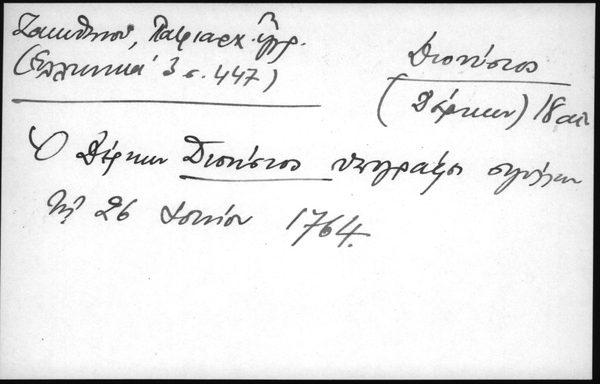 Ζακυθηνού, Πατριαρχ. έγγρ.
(Ελληνικά 3 σ. 447)
Διονύσιος
(Δέρκων) 18 αι
Ο Δέρκων Διονύσιος υπογράφει σιγίλλιον
τη 26 Ιουνίου 1764.